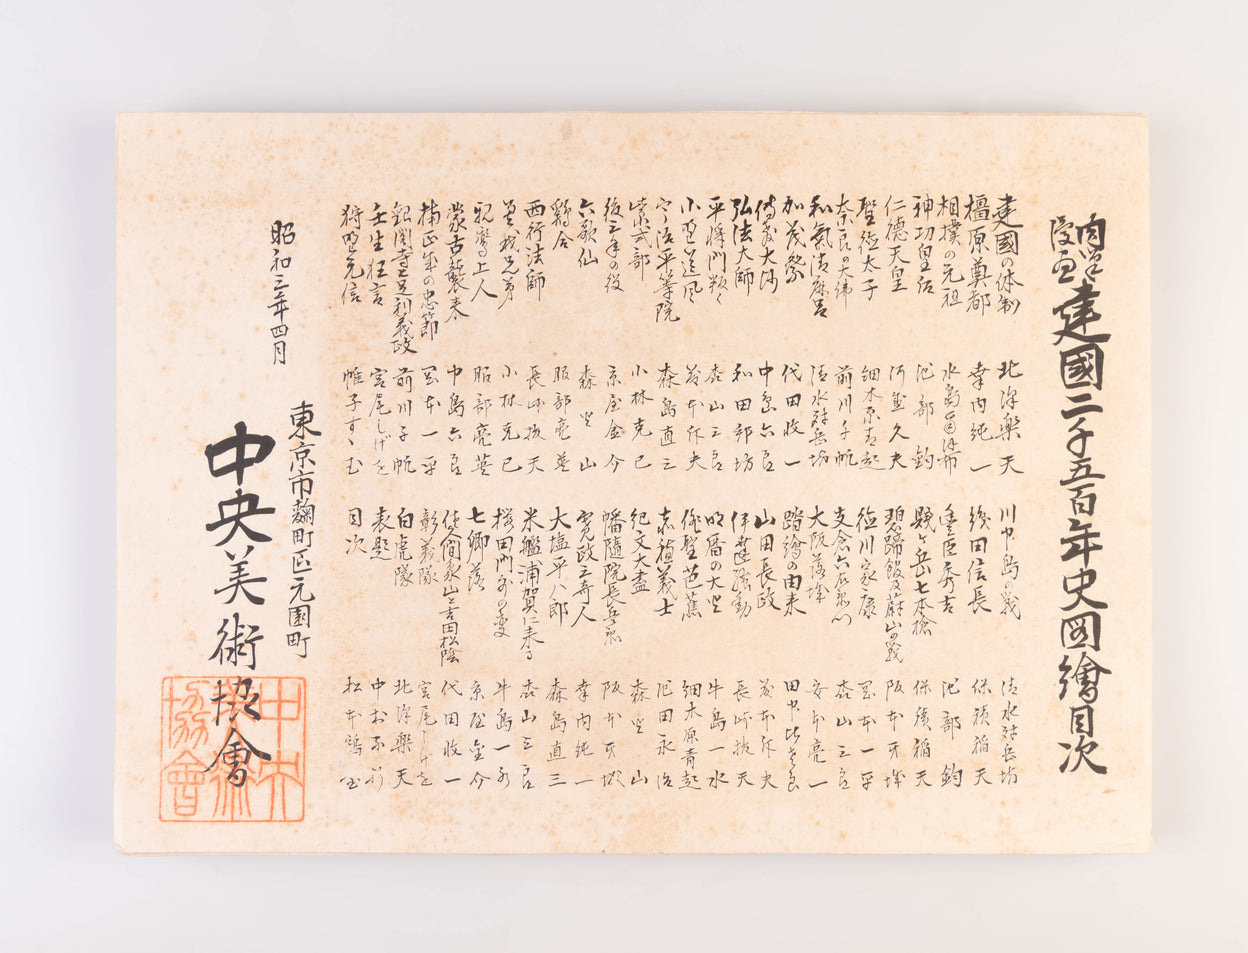 建國二千五百年史図繪目次
建國の体制
橿原奠都
相撲の元祖
神功皇后
仁徳天皇
聖徳太子
奈良の大佛
和氣清麻呂
加茂祭
傳教大師
弘法大師
平将門叛く
小野道風
宇治平等院
紫式部
後三年の役
六歌仙
鶏合
西行法師
曽我兄弟
親鸞上人
蒙古襲来
楠正成の忠節
銀閣寺と足利義政
壬生狂言
狩野元信
北澤楽天
幸内純一
水島爾保布
池部鈞
河盛久夫
細木原青起
前川千帆
清水対岳坊
代田收一
中島六郎
和田邦坊
森島直三
小林克己
京屋金介
森火山
服部亮英
長崎抜天
小林克己
服部亮英
中島六郎
岡本一平
前川千帆
宮尾しげを
帷子すゝむ
川中島の戦
織田信長
豊臣秀吉
賤ヶ岳七本槍
碧蹄館及蔚山の戦
徳川家康
支倉六右衛門
大阪落城
踏繪の由来
山田長政
伊達騒動
明暦の大火
俳聖芭蕉
赤穂義士
紀文大尽
幡随院長兵衛
寛政三奇人
大塩平八郎
米艦浦賀に来る
桜田門外の変
七卿落
佐久間象山と吉田松陰
彰義隊
白虎隊
表題
目次
清水対岳坊
保積稲天
池部鈞
保積稲天
岡本一平
安本亮一
長崎抜天
牛島一水
細木原青起
森火山
池田永治
幸内純一
森島直三
牛島一水
京屋金介
代田收一
宮尾しげを
北澤楽天
昭和三年四月
東京市麹町区元園町
中央美術協會
中央美術協會